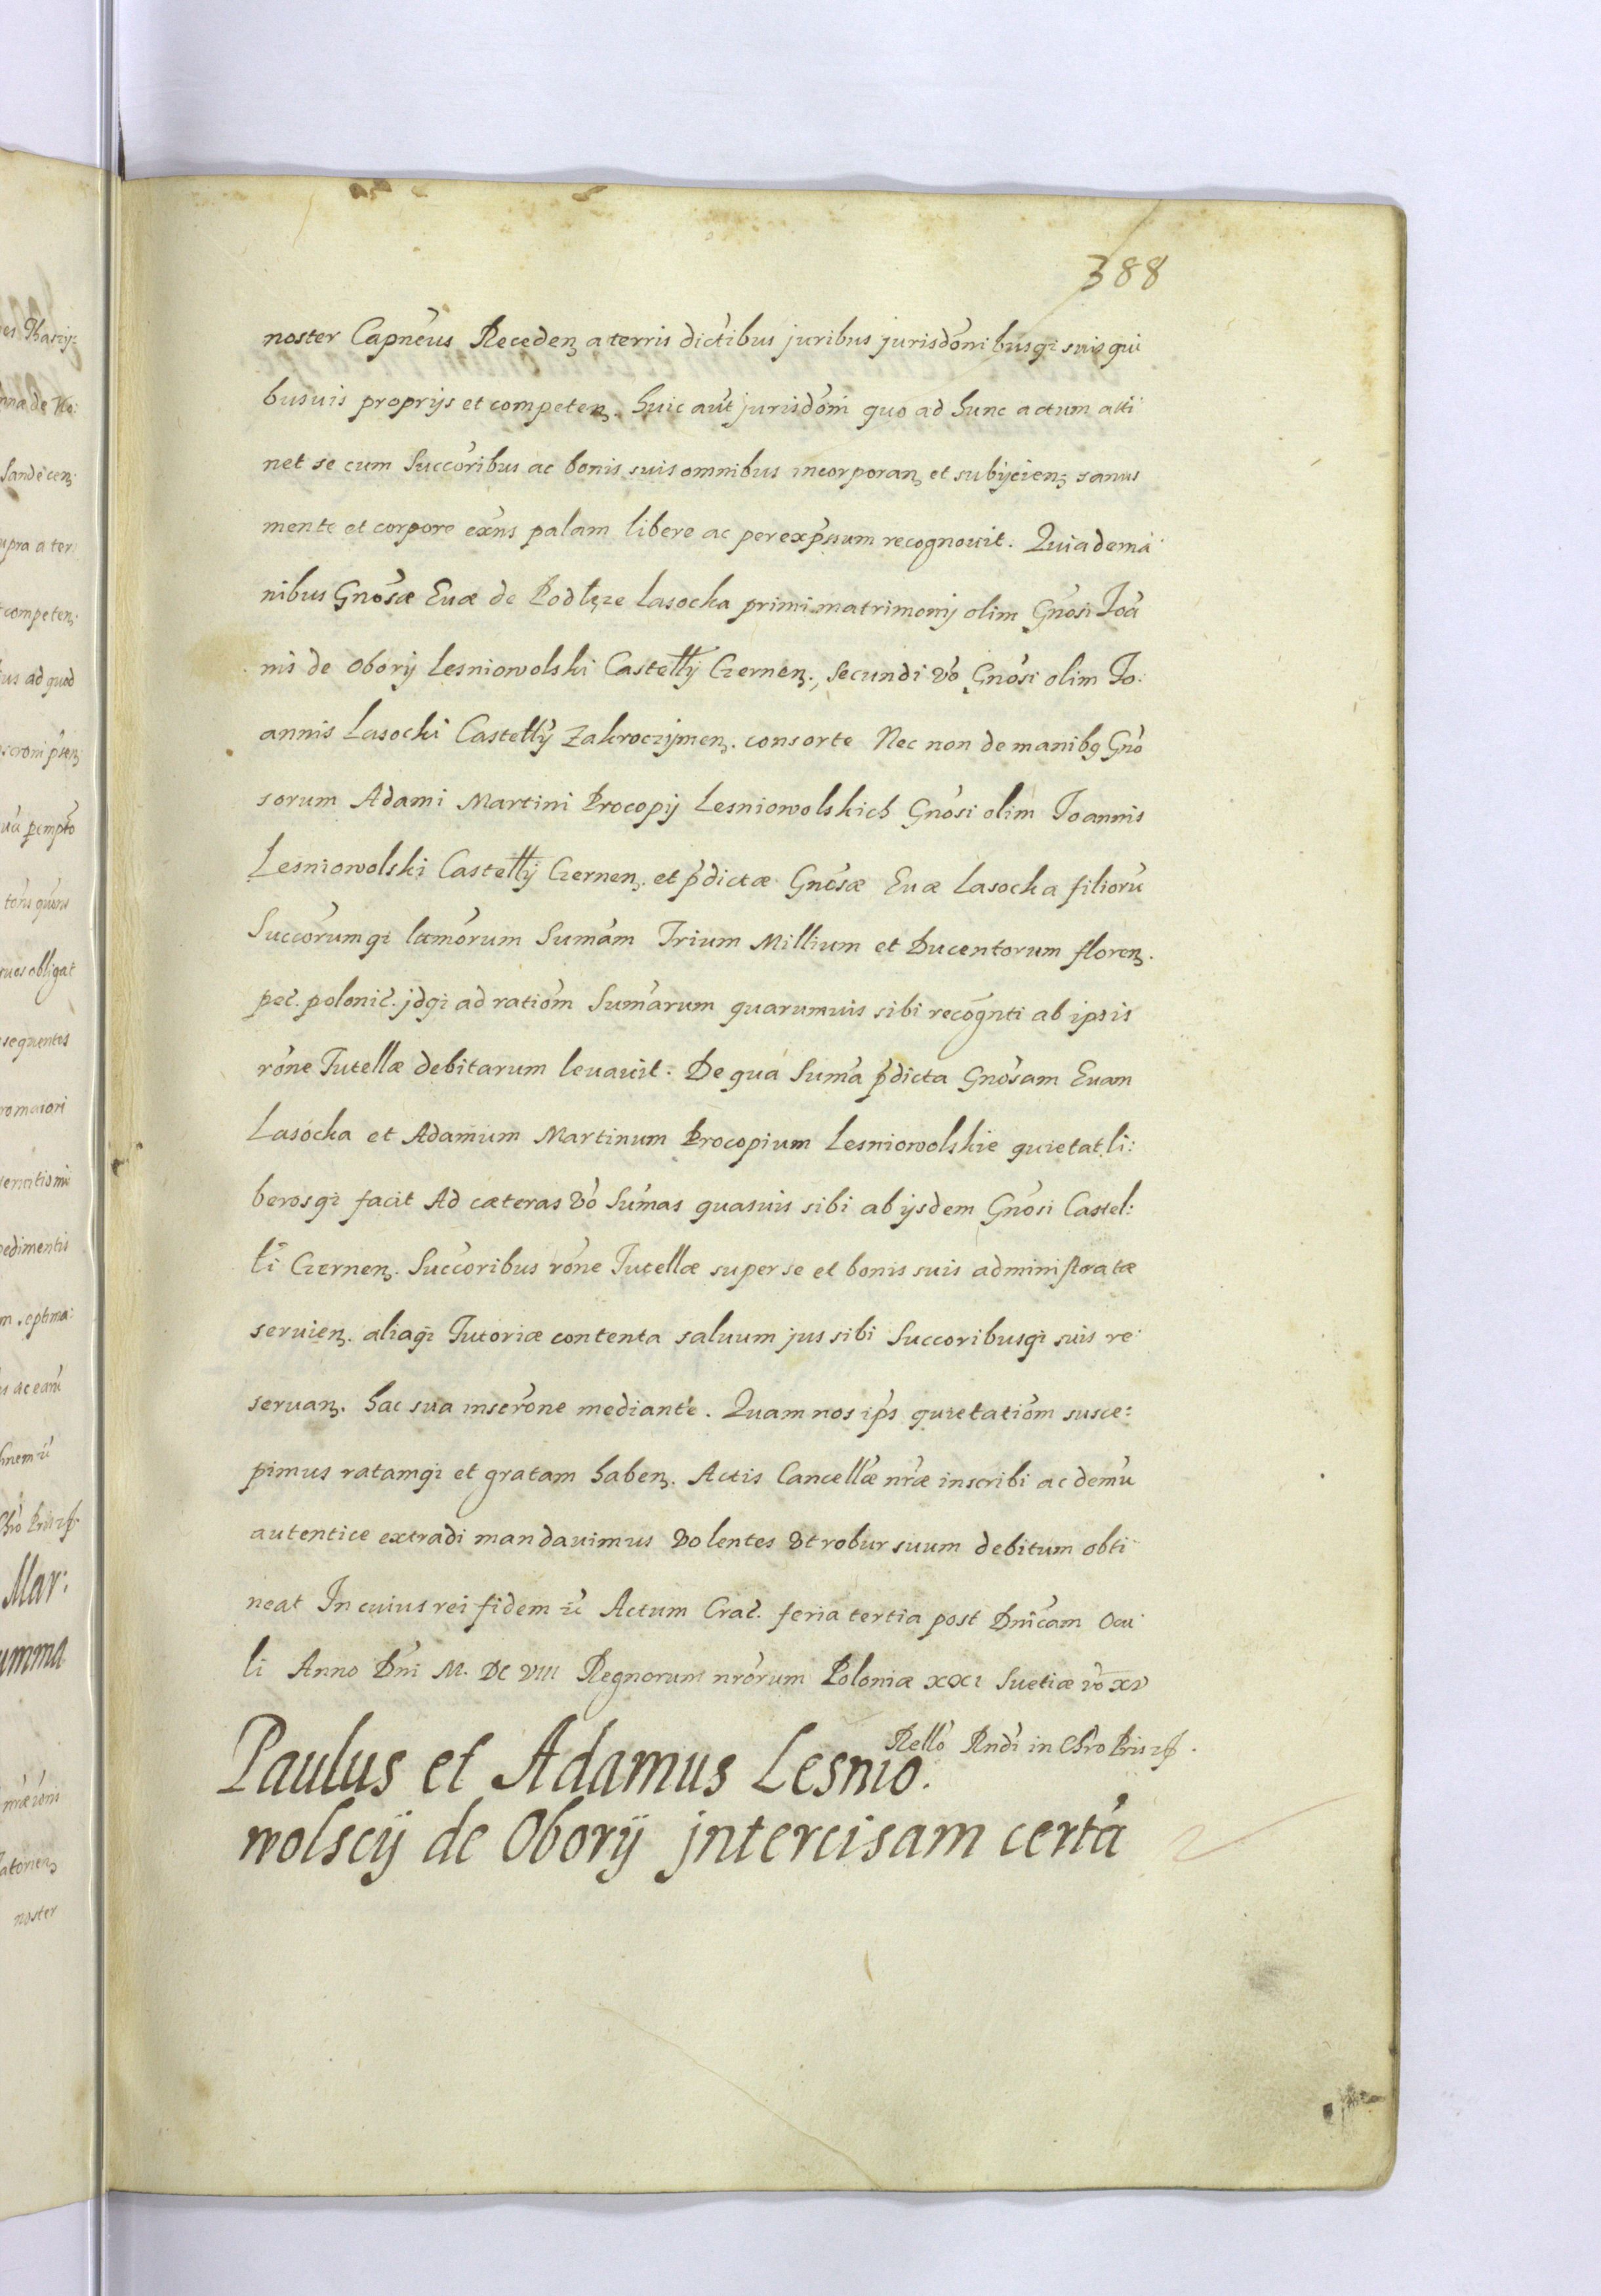 388
noster Capneus Receden. a terris dictibus juribus jurisdonibusqz suis qui
busuis proprijs et competen. Huic aut jurisdoni quo ad hunc actum atti
net se cum Succoribus ac bonis suis omnibus incorporan. et subijcien. sanus
mente et corpore exns palam libere ac per expssum recognouit. Quia de ma
nibus Gnosæ Euæ de Podłęze Lasocka primi matrimonij olim Gnosi Joa
nis de Oborÿ Lesniowolski Castellÿ Czernen., Secundi vo Gnosi olim Jo:
annis Lasocki Castellÿ Zakroczÿmen. consorte Nec non de manibq Gno
sorum Adami Martini Procopij Lesniowolskich Gnosi olim Joannis
Lesniowolski Castellÿ Czernen. et pdictæ Gnosæ Euæ Lasocka filioru
Succorumqz lmorum Sumam Trium Millium et Ducentorum floren.
pec. polonic. jdqz ad rationm Sumarum quarumuis sibi recognti ab ipsis
rone Tutellæ debitarum leuauit. De qua Suma pdicta Gnosam Euam
Lasocka et Adamum Martinum Procopium Lesniowolskie quietat li:
berosqz facit Ad cæteras vo Sumas quasuis sibi ab ijsdem Gnosi Castel:
li Czernen. Succoribus rone Tutellæ super se et bonis suis administratæ
seruien. aliaqz Tutoriæ contenta saluum jus sibi Succoribusqz suis re:
seruan. hac sua inscrone mediante. Quam nos ips quietationm susce:
pimus ratamqz et gratam haben. Actis Cancellæ nræ inscribi ac demu
autentice extradi mandauimus volentes vt robur suum debitum obti
neat In cuius rei fidem Actum Crac. feria tertia post Dnicam Ocu
li Anno Dni M. DC VIII Regnorum nrorum Poloniæ XXI Suetiæ vo XV
Rello Rndi in Chro Pris
Paulus et Adamus Lesnio.
wolscÿ de Oborÿ jntercisam certa